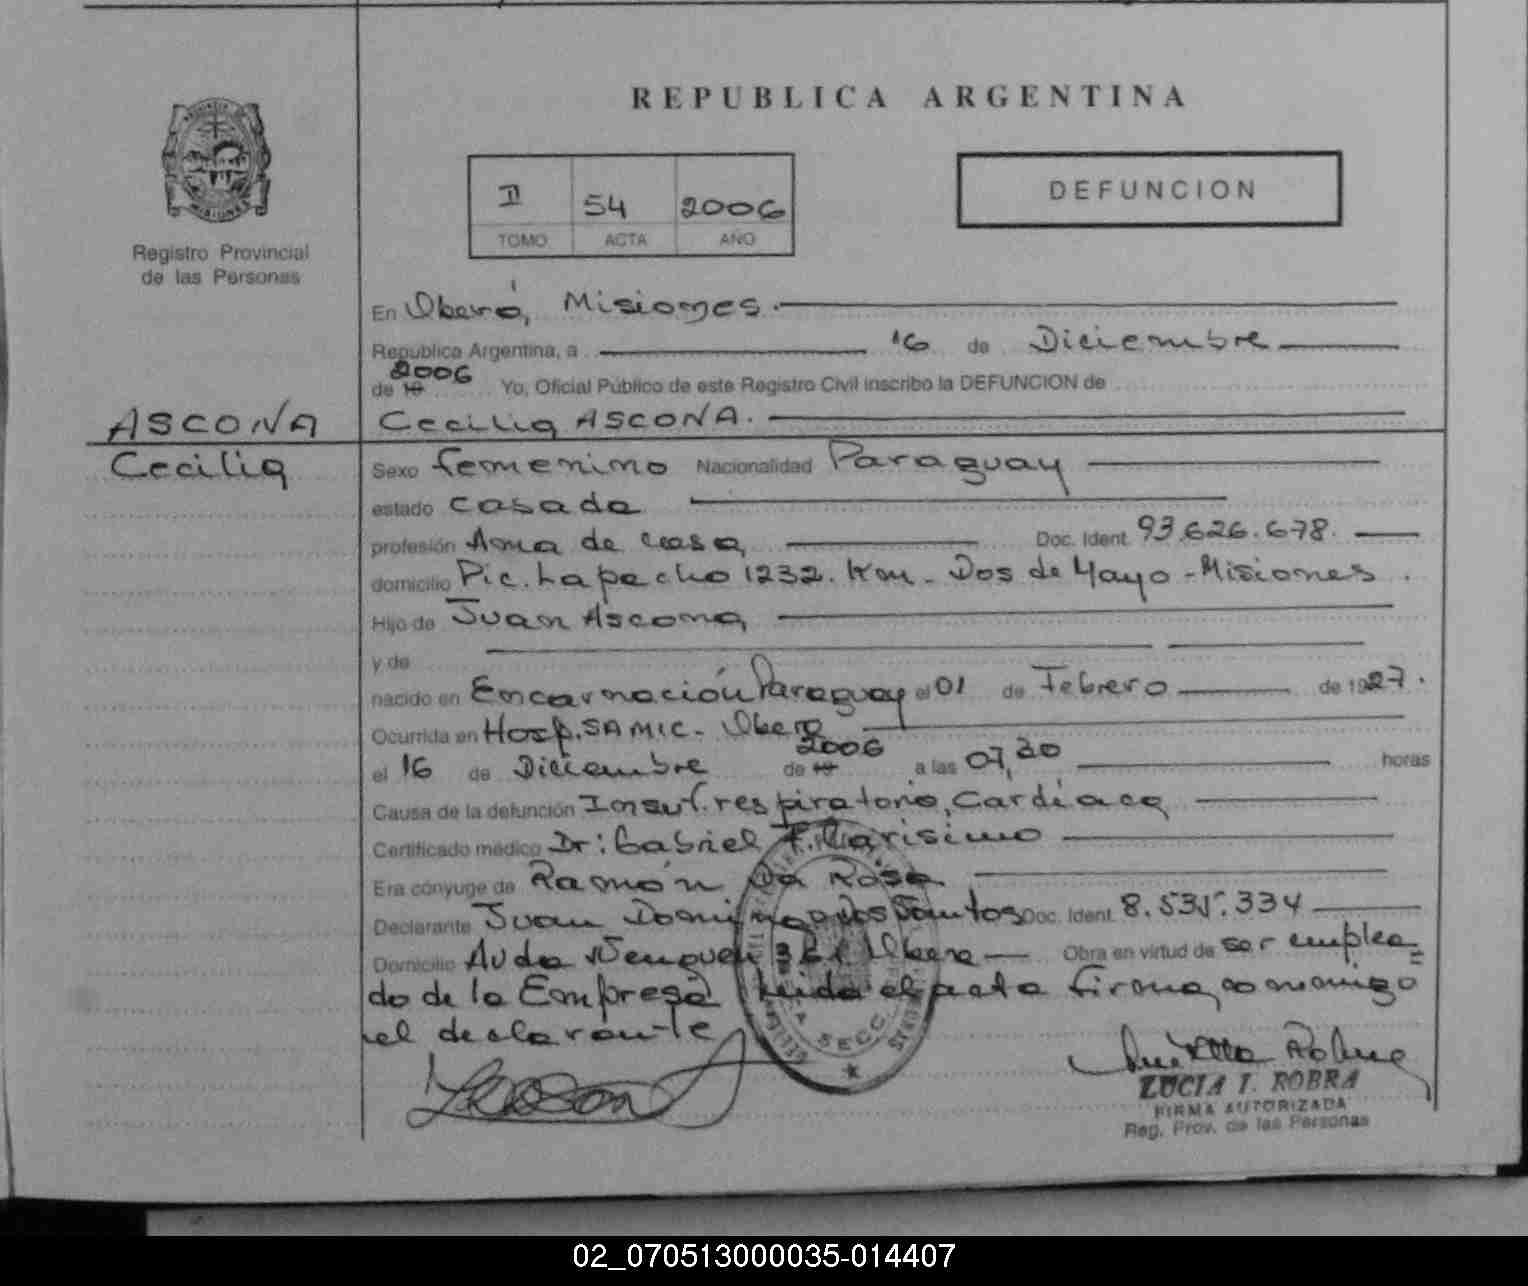 REPUBLICA ARGENTINA
Registro Provincial
de las Personas
II 54 2006
TOMO ACTA AÑO
DEFUNCION
En Oberá, Misiones.
Republica Argentina, a 16 de Diciembre
de 19 2006 Yo, Oficial Público de este Registro Civil inscribo la DEFUNCION de
ASCONA
Cecilia
Cecilia ASCONA.
Sexo femenino Nacionalidad Paraguay
estado casada
profesión Ama de casa, Doc. Ident. 93.626.678.
domicilio Pic. Lapacho 1232. Km. Dos de Mayo - Misiones.
Hijo de Juan Ascona,
y de
nacido en Encarnación Paraguay el 01 de Febrero de 1927.
Ocurrida en Hosp. SAMIC. Obera
el 16 de Diciembre de 19 2006 a las 07,30 horas
Causa de la defunción Insuf. respiratorio, Cardíaca
Certificado médico Dr: Gabriel F.
Era cónyuge de Ramón Da Rosa
Declarante Juan Domingo Dos Santos Doc. Ident. 8.535.334
Domicilio Avda Obera Obra en virtud de ser emplea=
do de la Empresa Leida el acta firma, conmigo
el declarante
SECC.
LUCIA I. ROBRA
FIRMA AUTORIZADA
Reg. Prov. de las Personas
02_070513000035-014407